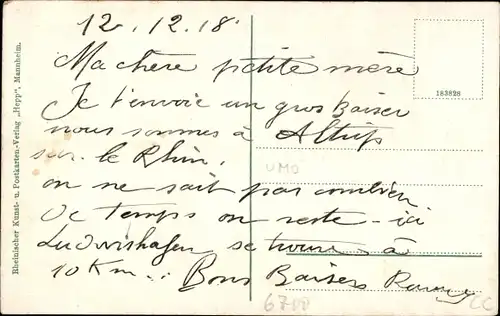 12.12.18
Ma chère petite mère
Je t'envoie un gros baiser
nous sommes à Altrip
sur le Rhin.
on ne sait pas combien
de temps on reste-ici
Ludwishafen se trouve à
10 Km... Bons Baisers
Rheinischer Kunst- u. Postkarten-Verlag „Hepp", Mannheim.
183828
UMO
6700
CC